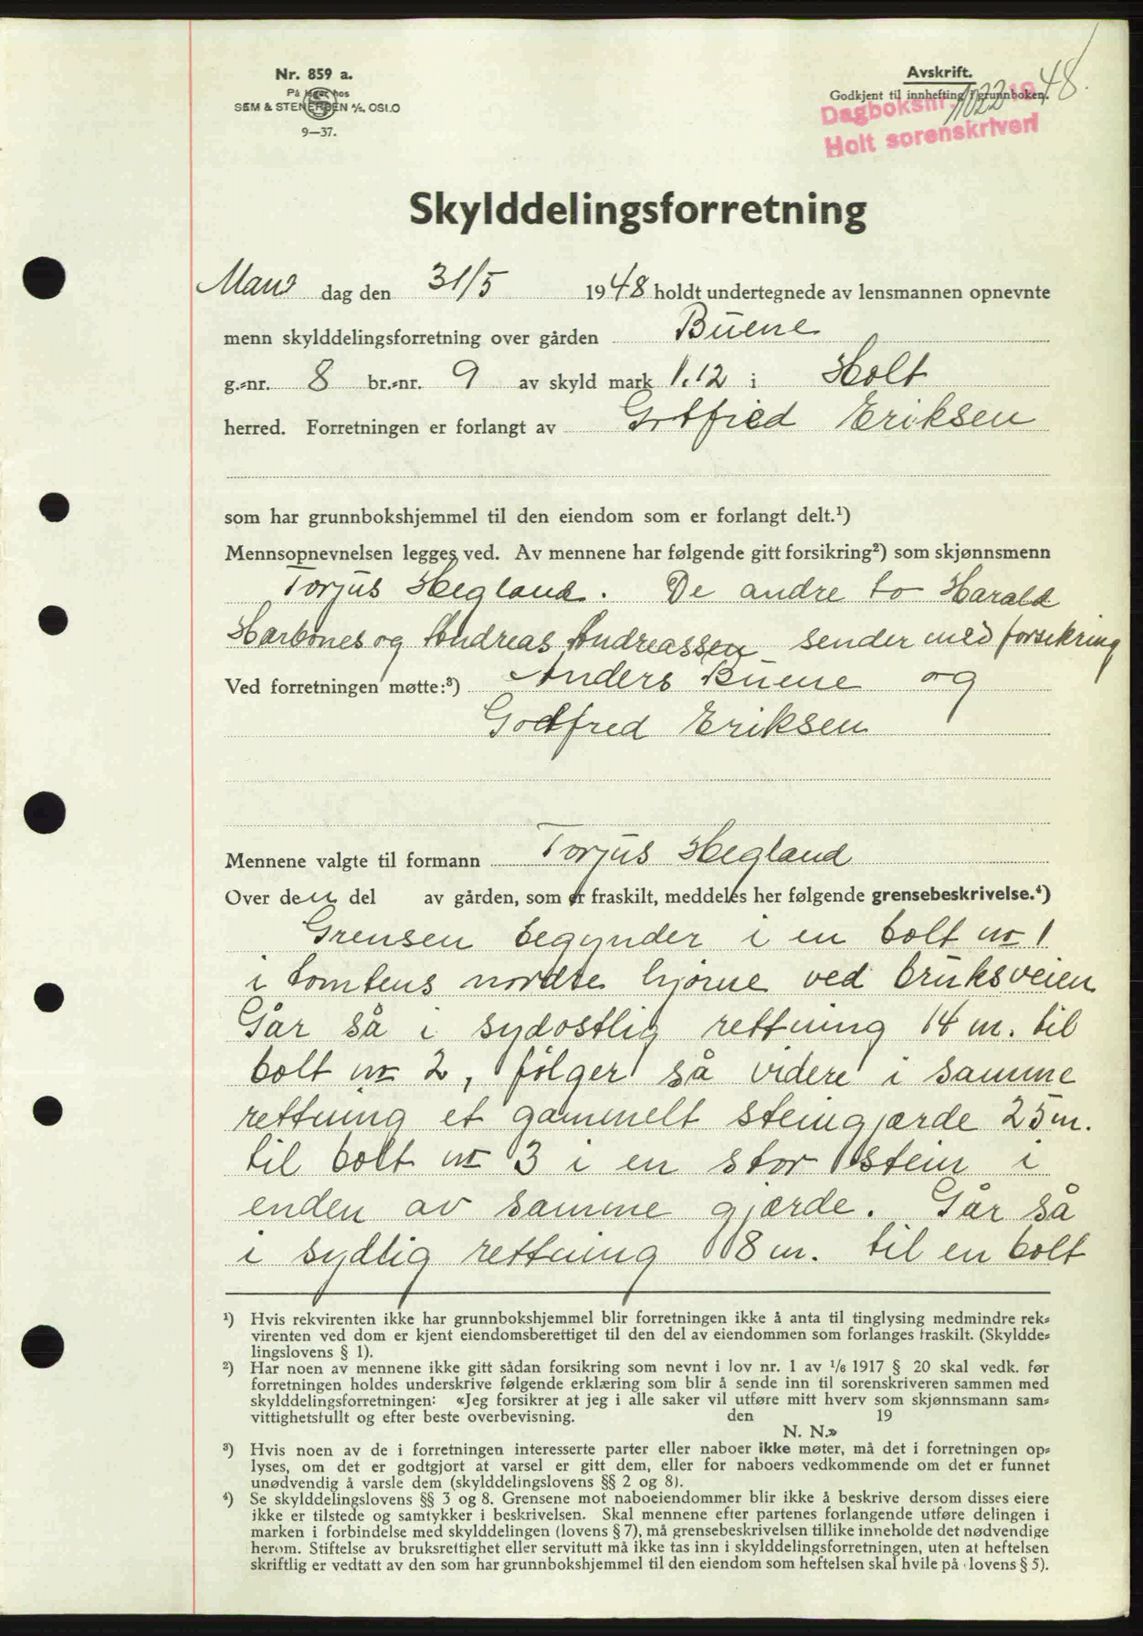 Nr. 859 a.
På lager hos
SEM & STENERSEN A/S, OSLO
9—37.
Avskrift.
Godkjent til innhefting i grunnboken.
Dagboksnr. 1022 19 48.
Holt sorenskriveri
Skylddelingsforretning
Man dag den 31/5 1948 holdt undertegnede av lensmannen opnevnte
menn skylddelingsforretning over gården Buene
g.-nr. 8 br.-nr. 9 av skyld mark 1.12 i Holt
herred. Forretningen er forlangt av Gotfred Eriksen
som har grunnbokshjemmel til den eiendom som er forlangt delt.¹)
Mennsopnevnelsen legges ved. Av mennene har følgende gitt forsikring²) som skjønnsmenn
Torjus Hegland. De andre to Harald
Harbones og Andreas Andreassen sender med forsikring
Ved forretningen møtte:³) Anders Buene og
Godtfred Eriksen
Mennene valgte til formann Torjus Hegland
Over den del av gården, som er fraskilt, meddeles her følgende grensebeskrivelse.⁴)
Grensen begynder i en bolt nr 1
i tomtens nordre hjørne ved bruksveien
Går så i sydostlig rettning 14 m. til
bolt nr 2, følger så videre i samme
rettning et gammelt steingjærde 25 m.
til bolt nr 3 i en stor stein i
enden av samme gjærde. Går så
i sydlig rettning 18 m. til en bolt
¹) Hvis rekvirenten ikke har grunnbokshjemmel blir forretningen ikke å anta til tinglysing medmindre rek-
virenten ved dom er kjent eiendomsberettiget til den del av eiendommen som forlanges fraskilt. (Skyldde-
lingslovens § 1).
²) Har noen av mennene ikke gitt sådan forsikring som nevnt i lov nr. 1 av 1/6 1917 § 20 skal vedk. før
forretningen holdes underskrive følgende erklæring som blir å sende inn til sorenskriveren sammen med
skylddelingsforretningen: «Jeg forsikrer at jeg i alle saker vil utføre mitt hverv som skjønnsmann sam-
vittighetsfullt og efter beste overbevisning. den 19
N. N.»
³) Hvis noen av de i forretningen interesserte parter eller naboer ikke møter, må det i forretningen op-
lyses, om det er godtgjort at varsel er gitt dem, eller for naboers vedkommende om det er funnet
unødvendig å varsle dem (skylddelingslovens §§ 2 og 8).
⁴) Se skylddelingslovens §§ 3 og 8. Grensene mot naboeiendommer blir ikke å beskrive dersom disses eiere
ikke er tilstede og samtykker i beskrivelsen. Skal mennene efter partenes forlangende utføre delingen i
marken i forbindelse med skylddelingen (lovens § 7), må grensebeskrivelsen tillike inneholde det nødvendige
herom. Stiftelse av bruksrettighet eller servitutt må ikke tas inn i skylddelingsforretningen, uten at heftelsen
skriftlig er vedtatt av den som har grunnbokshjemmel til den eiendom som heftelsen skal hvile på (lovens § 5).